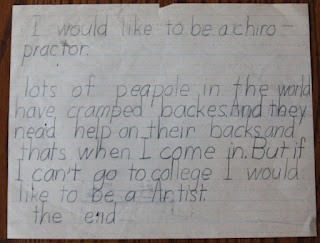 I would like to be a chiro-
practor.
lots of peapole in the world
have cramped backes. And they
nead help on their backs and
thats when I come in. But if
I can't go to college I would
like to be a Artist.
the end